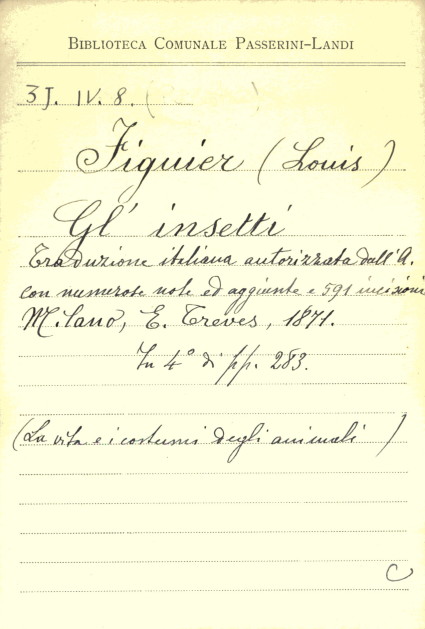 BIBLIOTECA COMUNALE PASSERINI-LANDI
3J. IV. 8. (
Figuier (Louis)
Gl' insetti
Traduzione italiana autorizzata dall'A.
con numerose note ed aggiunte e 591 incisioni
Milano, E. Treves, 1871.
In 4° di pp. 283.
(La vita e i costumi degli animali)
C